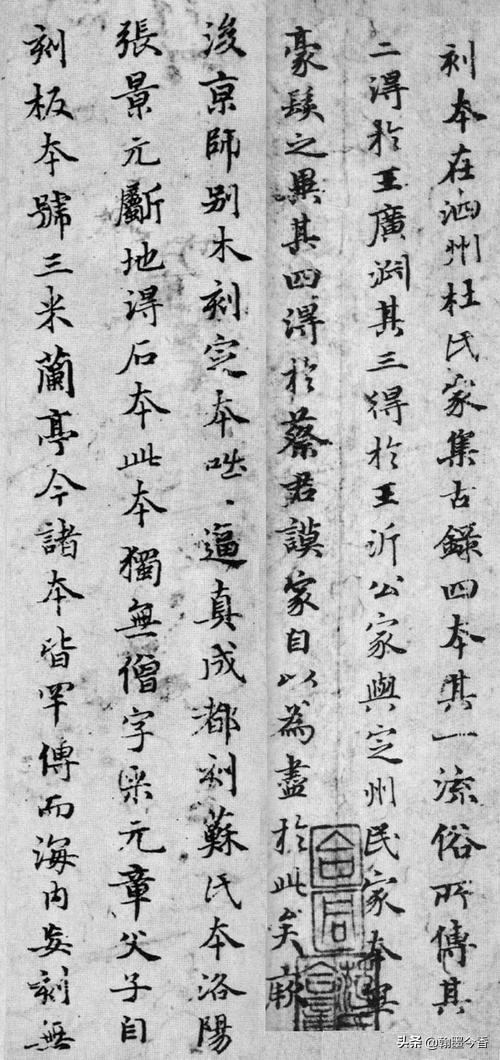 刻本在泗州杜氏家集古錄四本其一流俗所傳其
二得於王廣淵其三得於王沂公家與定州民家本無
豪髮之異其四得於蔡君謨家自以為盡於此矣
後京師別木刻定本咄々逼真成都刻蘇氏本洛陽
張景元斸地得石本此本獨無僧字米元章父子自
刻板本號三米蘭亭今諸本皆罕傳而海內妄刻無
头条 @翰墨今香